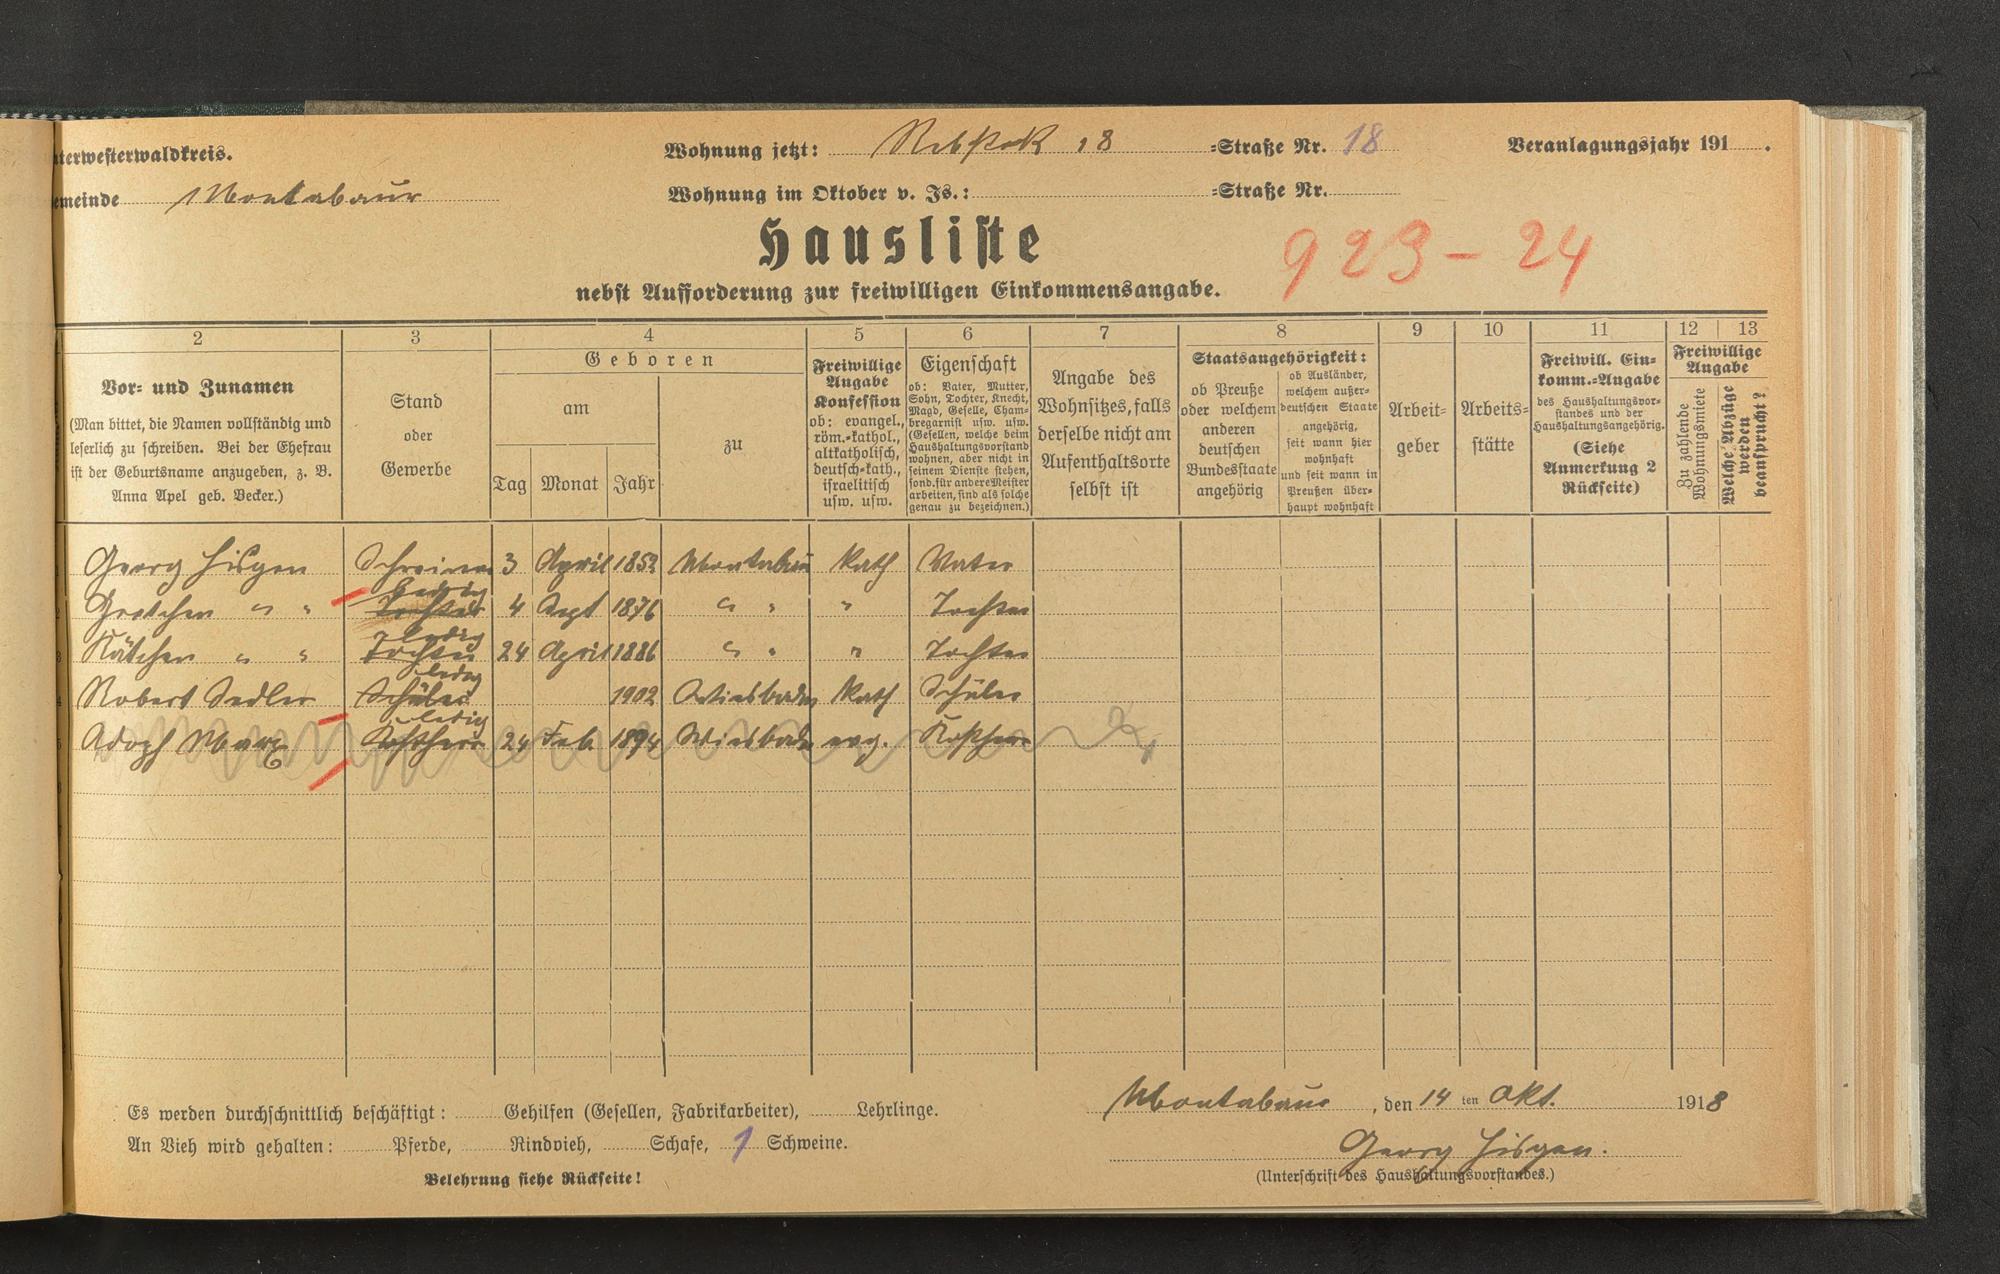 nterwesterwaldkreis.
Wohnung jetzt: Rebstock 18 =Straße Nr. 18
Veranlagungsjahr 191 .
emeinde Montabaur
Wohnung im Oktober v. Js.: =Straße Nr.
Hausliste
923-24
nebst Aufforderung zur freiwilligen Einkommensangabe.
2 3 4 5 6 7 8 9 10 11 12 13
Vor= und Zunamen
(Man bittet, die Namen vollständig und
leserlich zu schreiben. Bei der Ehefrau
ist der Geburtsname anzugeben, z. B.
Anna Apel geb. Becker.)
Stand
oder
Gewerbe
Geboren
am
Tag Monat Jahr
zu
Freiwillige
Angabe
Konfession
ob: evangel.,
röm.=kathol.,
altkatholisch,
deutsch=kath.,
israelitisch
usw. usw.
Eigenschaft
ob: Vater, Mutter,
Sohn, Tochter, Knecht,
Magd, Geselle, Cham=
bregarnist usw. usw.
(Gesellen, welche beim
Haushaltungsvorstand
wohnen, aber nicht in
seinem Dienste stehen,
sond. für andere Meister
arbeiten, sind als solche
genau zu bezeichnen.)
Angabe des
Wohnsitzes, falls
derselbe nicht am
Aufenthaltsorte
selbst ist
Staatsangehörigkeit:
ob Preuße
oder welchem
anderen
deutschen
Bundesstaate
angehörig
ob Ausländer,
welchem außer=
deutschen Staate
angehörig,
seit wann hier
wohnhaft
und seit wann in
Preußen über=
haupt wohnhaft
Arbeit=
geber
Arbeits=
stätte
Freiwill. Ein=
komm.=Angabe
des Haushaltungsvor=
standes und der
Haushaltungsangehörig.
(Siehe
Anmerkung 2
Rückseite)
Freiwillige
Angabe
Zu zahlende
Wohnungsmiete
Welche Abzüge
werden
beansprucht?
Georg Hisgen Schreiner 3 April 1852 Montabaur Kath Vater
ledig
Gretchen " " Tochter 4 Sept 1876 " " " Tochter
ledig
Kätchen " " Tochter 24 April 1886 " " " Tochter
ledig
Robert Sedler Schüler 1902 Wiesbaden Kath Schüler
ledig
Adolf Marx Kostherr 24 Feb. 1894 Wiesbaden evg. Kostherr
Es werden durchschnittlich beschäftigt: Gehilfen (Gesellen, Fabrikarbeiter), Lehrlinge.
Montabaur, den 14 ten Okt. 1918
An Vieh wird gehalten: Pferde, Rindvieh, Schafe, 1 Schweine.
Georg Hisgen.
Belehrung siehe Rückseite!
(Unterschrift des Haushaltungsvorstandes.)